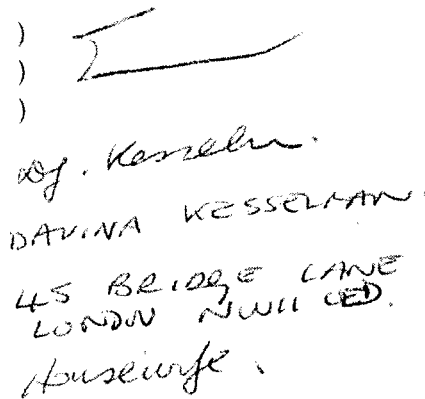 )
)
)
DJ. Kesselman.
DAVINA KESSELMAN.
45 BRIDGE LANE
LONDON NW11 0ED.
Housewife.